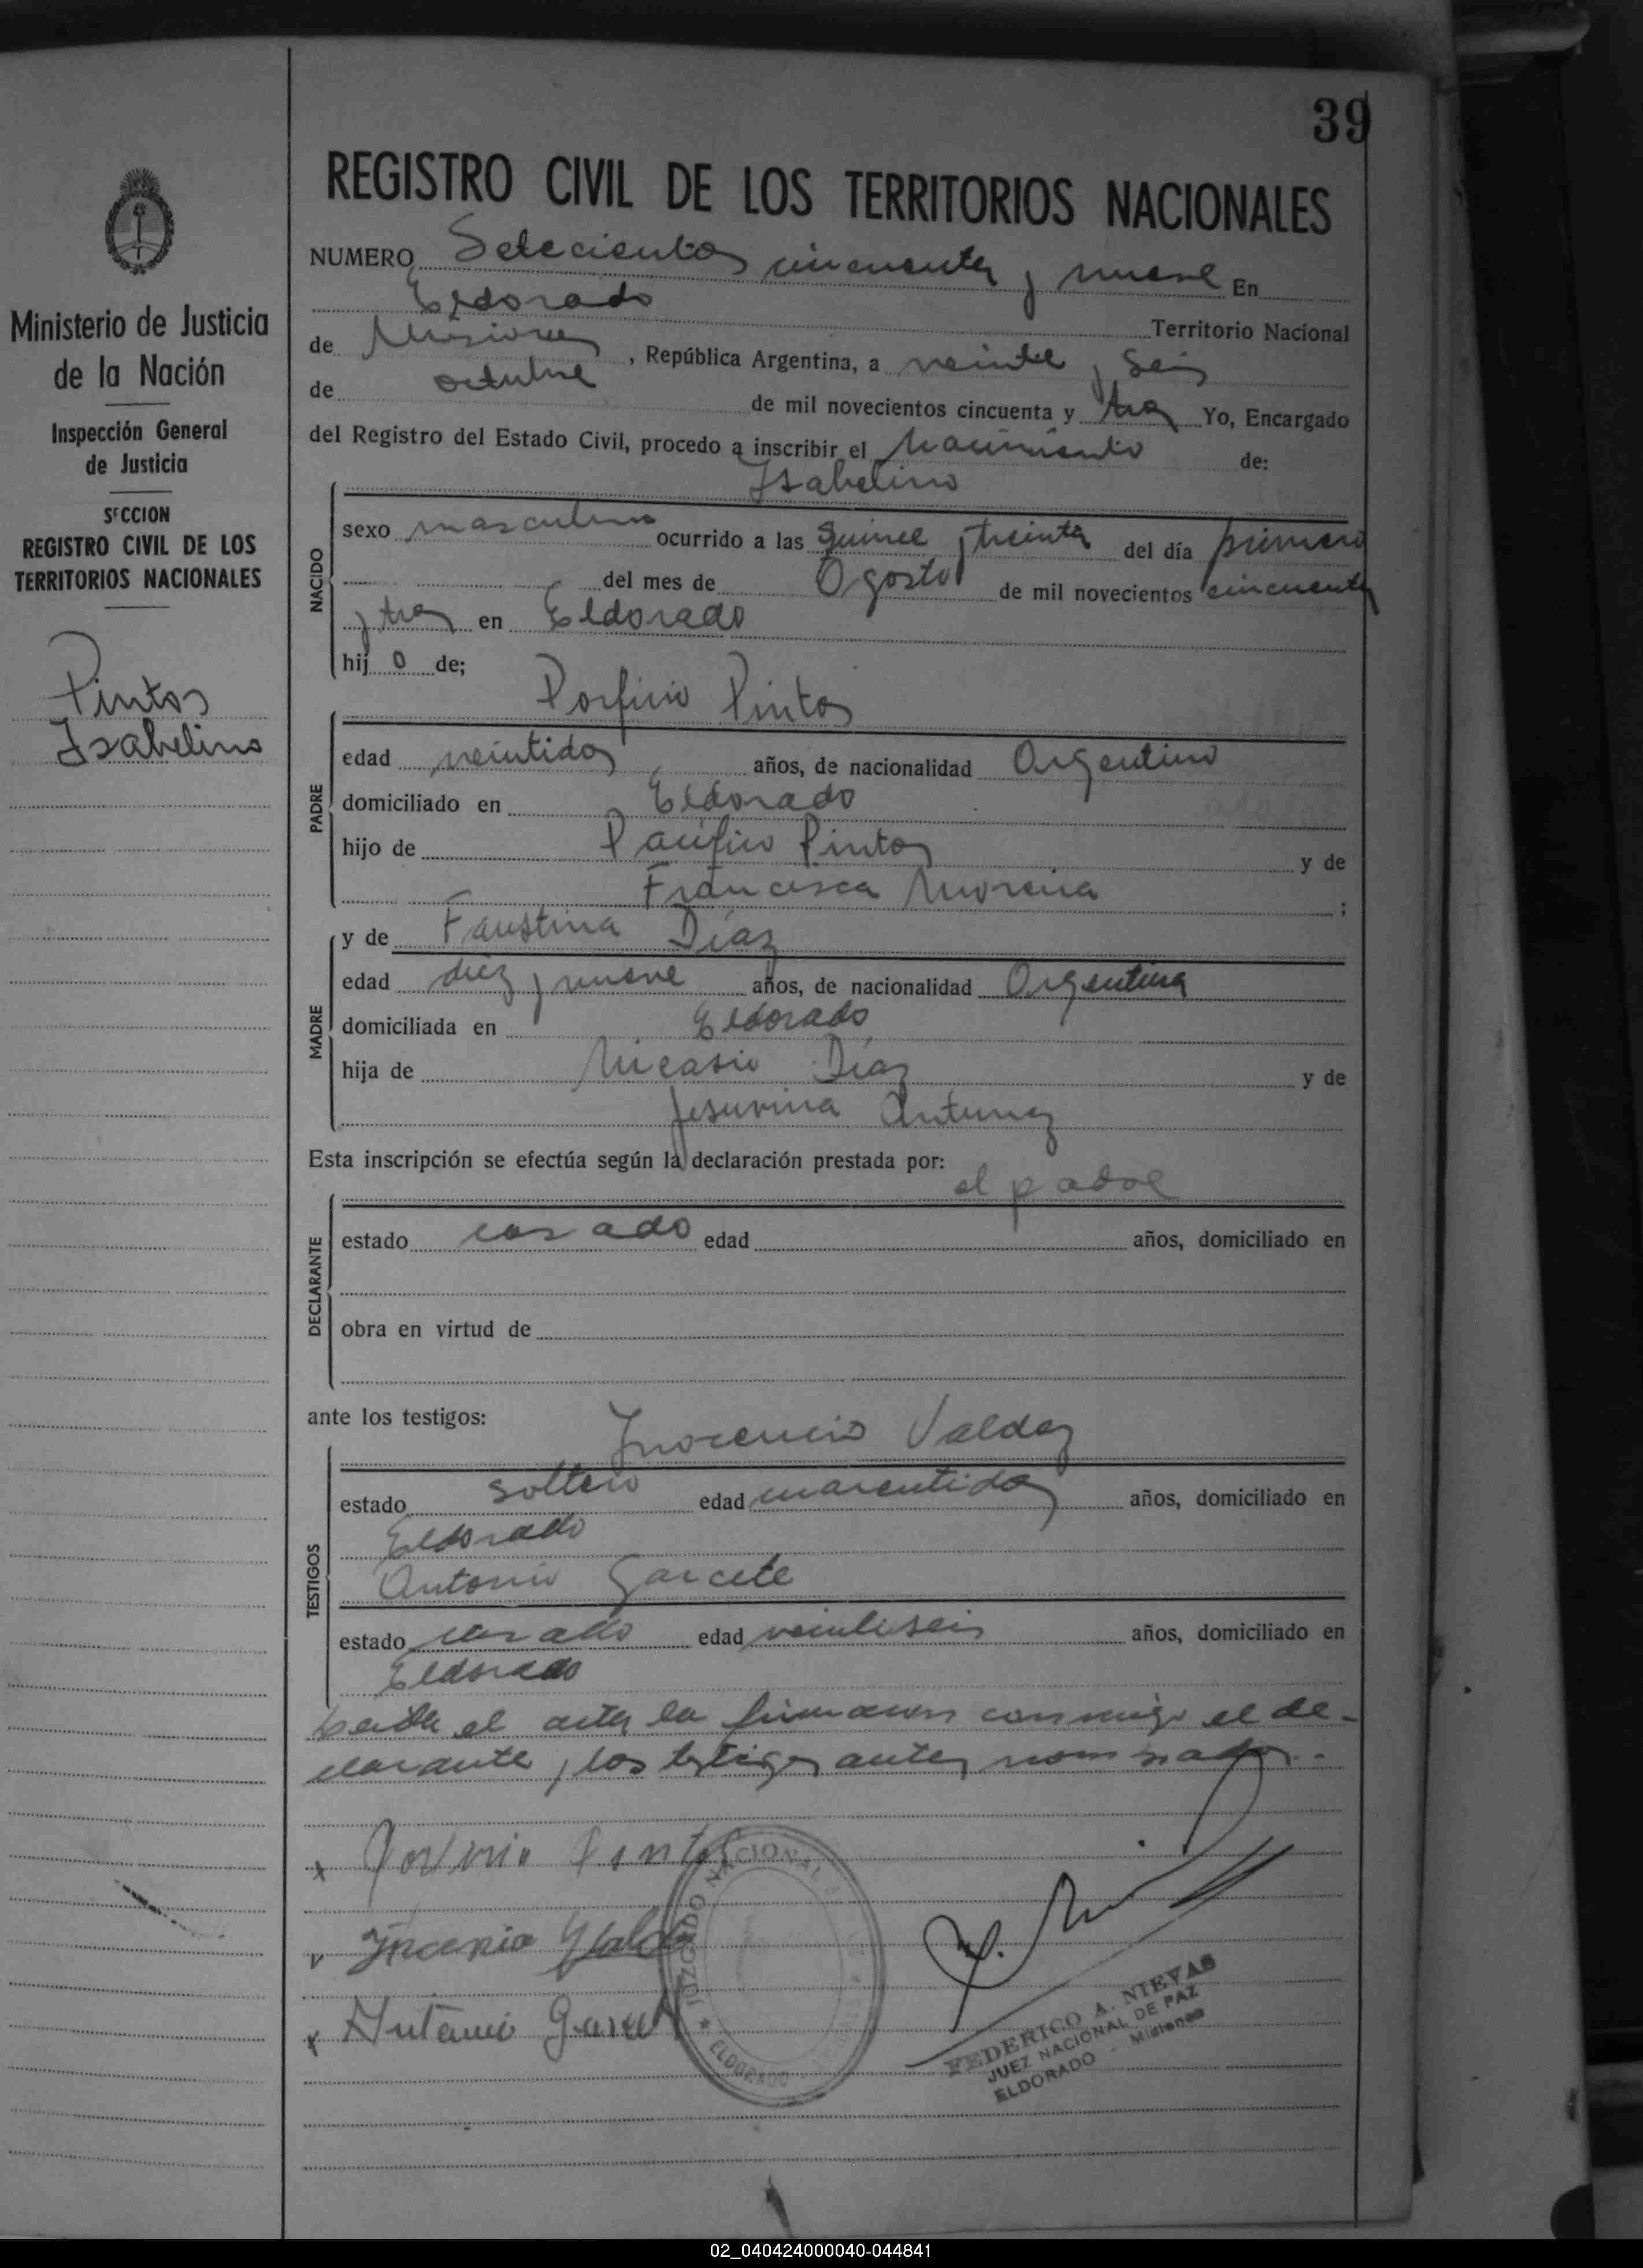 39
REGISTRO CIVIL DE LOS TERRITORIOS NACIONALES
Ministerio de Justicia
de la Nación
Inspección General
de Justicia
SECCION
REGISTRO CIVIL DE LOS
TERRITORIOS NACIONALES
Pintos
Isabelino
NUMERO Setecientos cincuenta y nueve En
Eldorado Territorio Nacional
de Misiones, República Argentina, a veinte y seis
de octubre de mil novecientos cincuenta y tres Yo, Encargado
del Registro del Estado Civil, procedo a inscribir el Nacimiento de:
Isabelino
NACIDO
sexo masculino ocurrido a las quince y treinta del día primero
del mes de Agosto de mil novecientos cincuenta
y tres en Eldorado
hijo de;
Porfirio Pintos
PADRE
edad veintidos años, de nacionalidad Argentino
domiciliado en Eldorado
hijo de Pacífico Pintos y de
Francisca Moreira ;
MADRE
y de Faustina Díaz
edad diez y nueve años, de nacionalidad Argentina
domiciliada en Eldorado
hija de Nicasio Díaz y de
Jesuvina Antunez
Esta inscripción se efectúa según la declaración prestada por:
el padre
DECLARANTE
estado casado edad años, domiciliado en
obra en virtud de
ante los testigos:
Inocencio Valdez
TESTIGOS
estado soltero edad cuarentidos años, domiciliado en
Eldorado
Antonio Garcete
estado casado edad veintiseis años, domiciliado en
Eldorado
Leida el acta la firmaron conmigo el de-
clarante y los testigos antes nombrados.-
x Porfirio Pintos
Antonio Garcete
JUZGADO NACIONAL
ELDORADO
FEDERICO A. NIEVAS
JUEZ NACIONAL DE PAZ
ELDORADO - Misiones
02_040424000040-044841